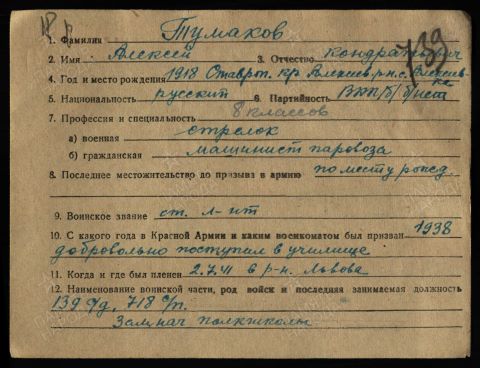 739
1. Фамилия Тумаков
2. Имя Алексей 3. Отчество Кондратьевич
4. Год и место рождения 1918 Ставроп. кр Алексеев. р-н. с. Алексеевка
5. Национальность русский 6. Партийность ВКП/б/ б/иста
7. Профессия и специальность 8 классов
а) военная стрелок
б) гражданская машинист паровоза
8. Последнее местожительство до призыва в армию по месту рожд.
9. Воинское звание ст. л-нт
10. С какого года в Красной Армии и каким военкоматом был призван 1938
добровольно поступил в училище
11. Когда и где был пленен 2.7.41 в р-н. Львова
12. Наименование воинской части, род войск и последняя занимаемая должность
139 с/д, 718 с/п.
Зам. нач полкшколы